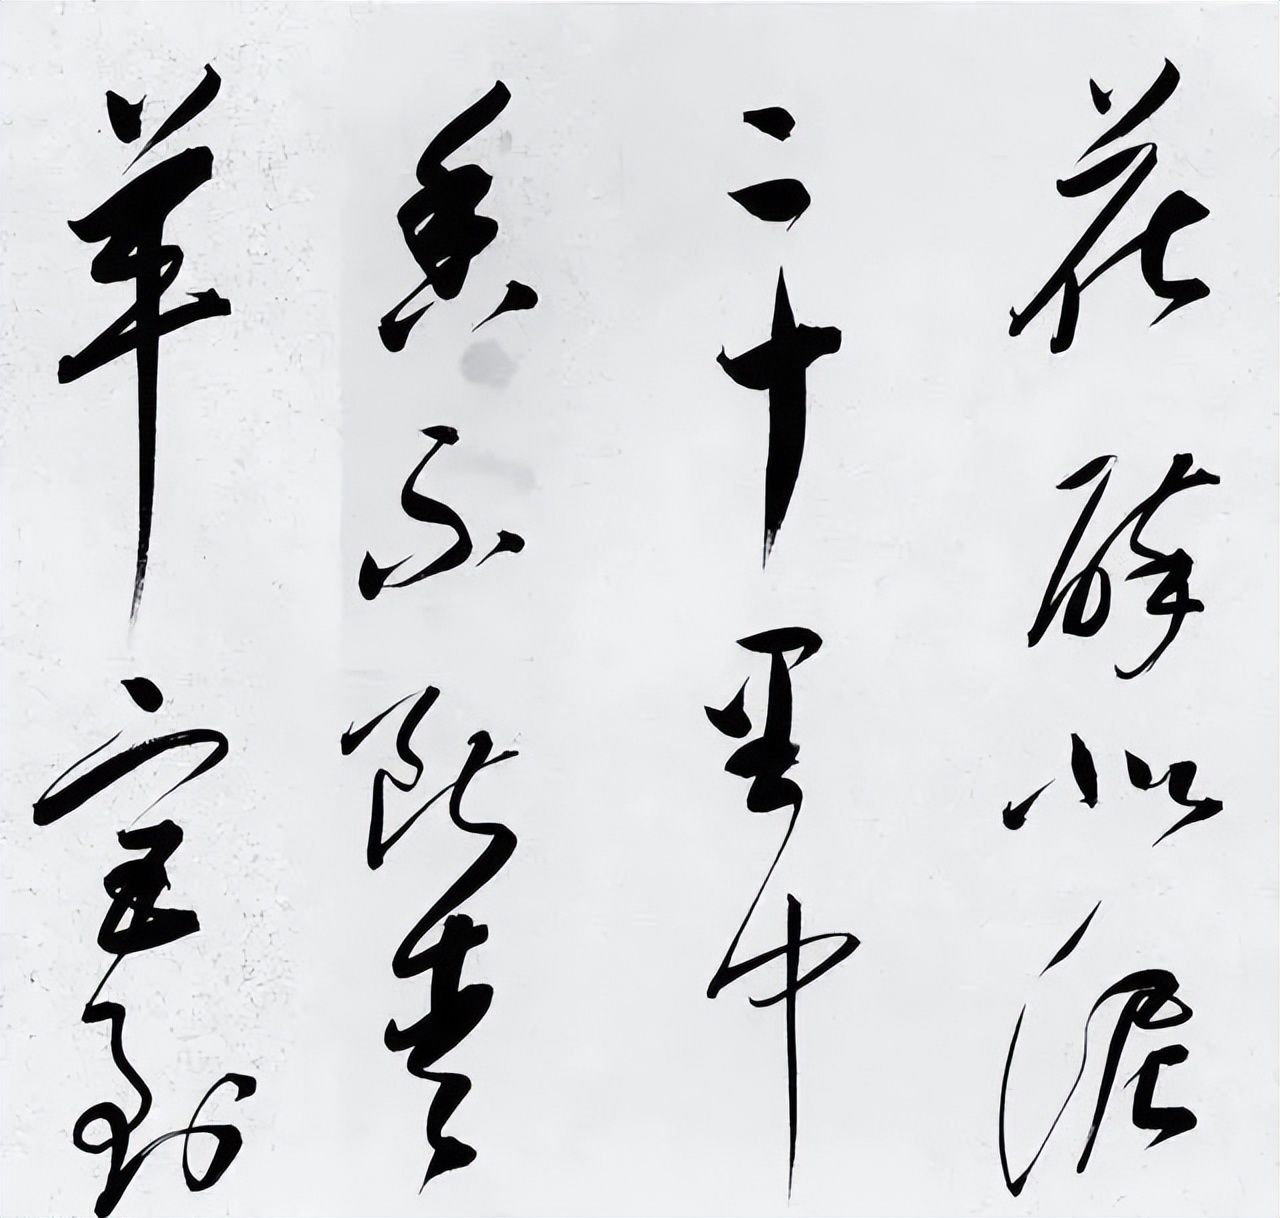 花醉似泥
二十里中
香不断青
羊宫到